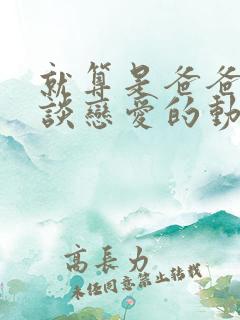 就算是爸爸
談戀愛的動
高長力
未任同意禁止轉載